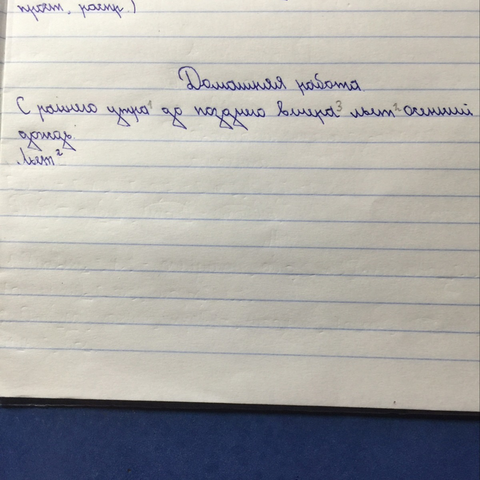 прост. распр.)
Домашняя работа.
С раннего утра¹ до позднего вечера³ льёт² осенний
дождь.
Льёт²